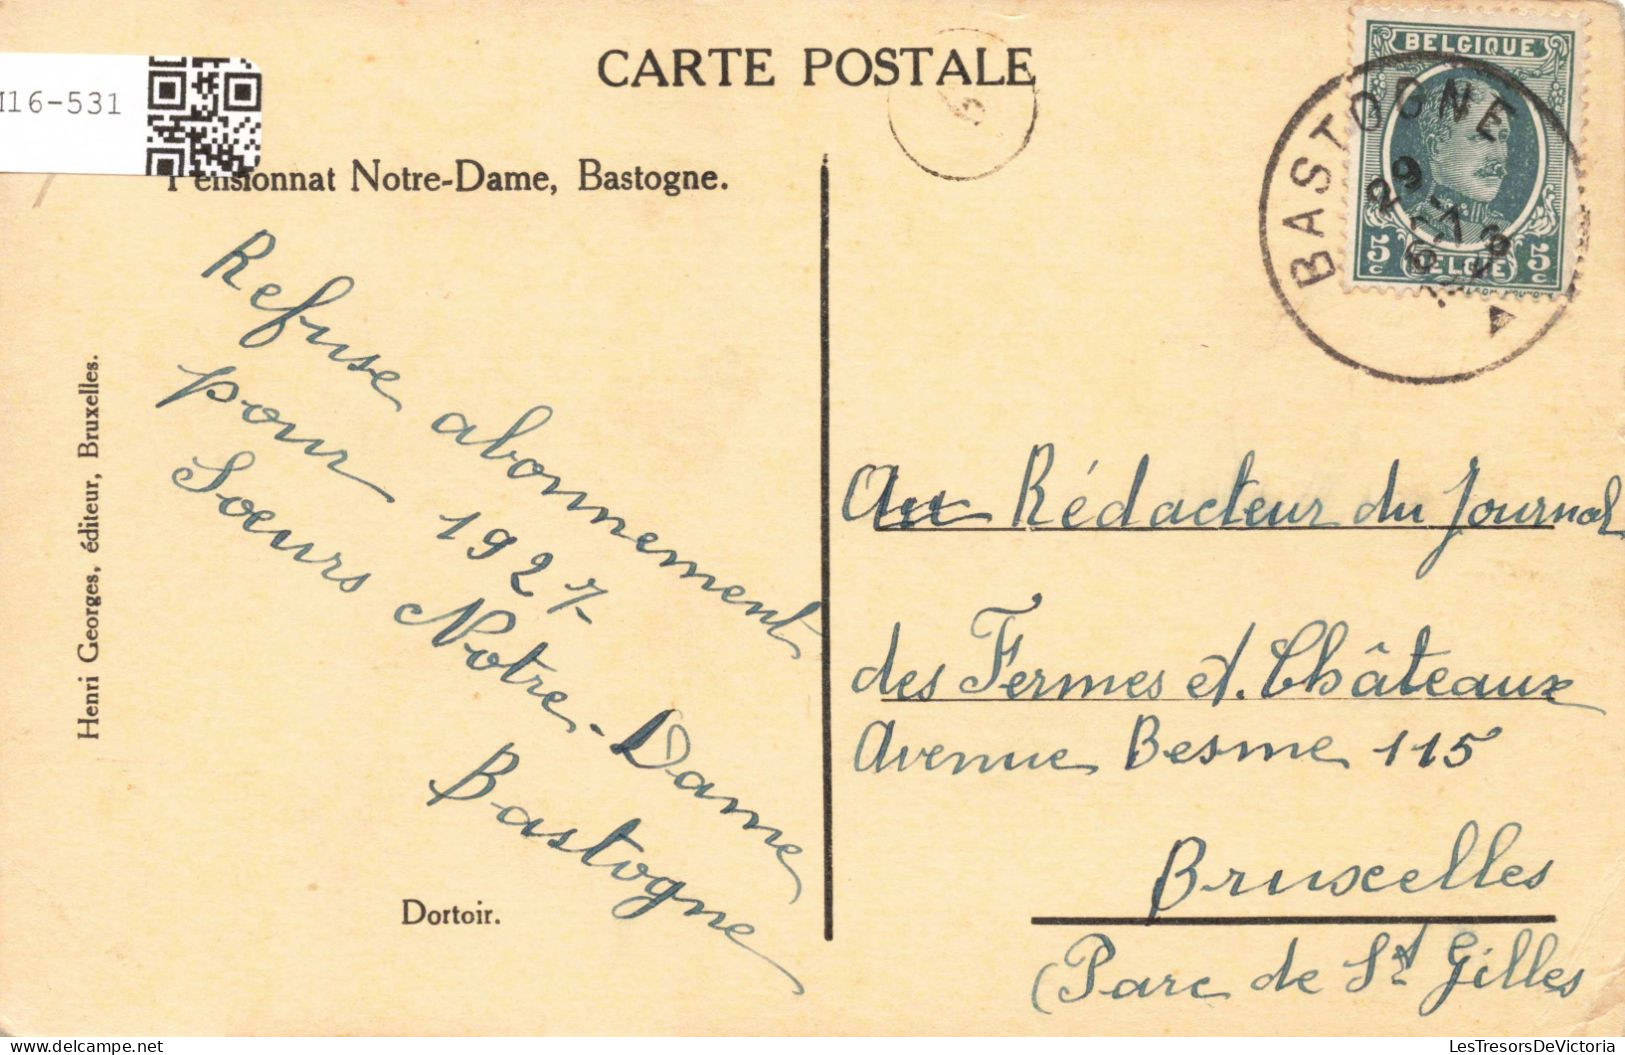 CARTE POSTALE
M16-531
Pensionnat Notre-Dame, Bastogne.
Refuse abonnement
pour 1927
Sœurs Notre-Dame
Bastogne
Dortoir.
Henri Georges, éditeur, Bruxelles.
BELGIQUE
5c BELGIE 5c
BASTOGNE
29
6
Au Rédacteur du Journal
des Fermes et Châteaux
Avenue Besme 115
Bruxelles
(Parc de St Gilles
LesTresorsDeVictoria